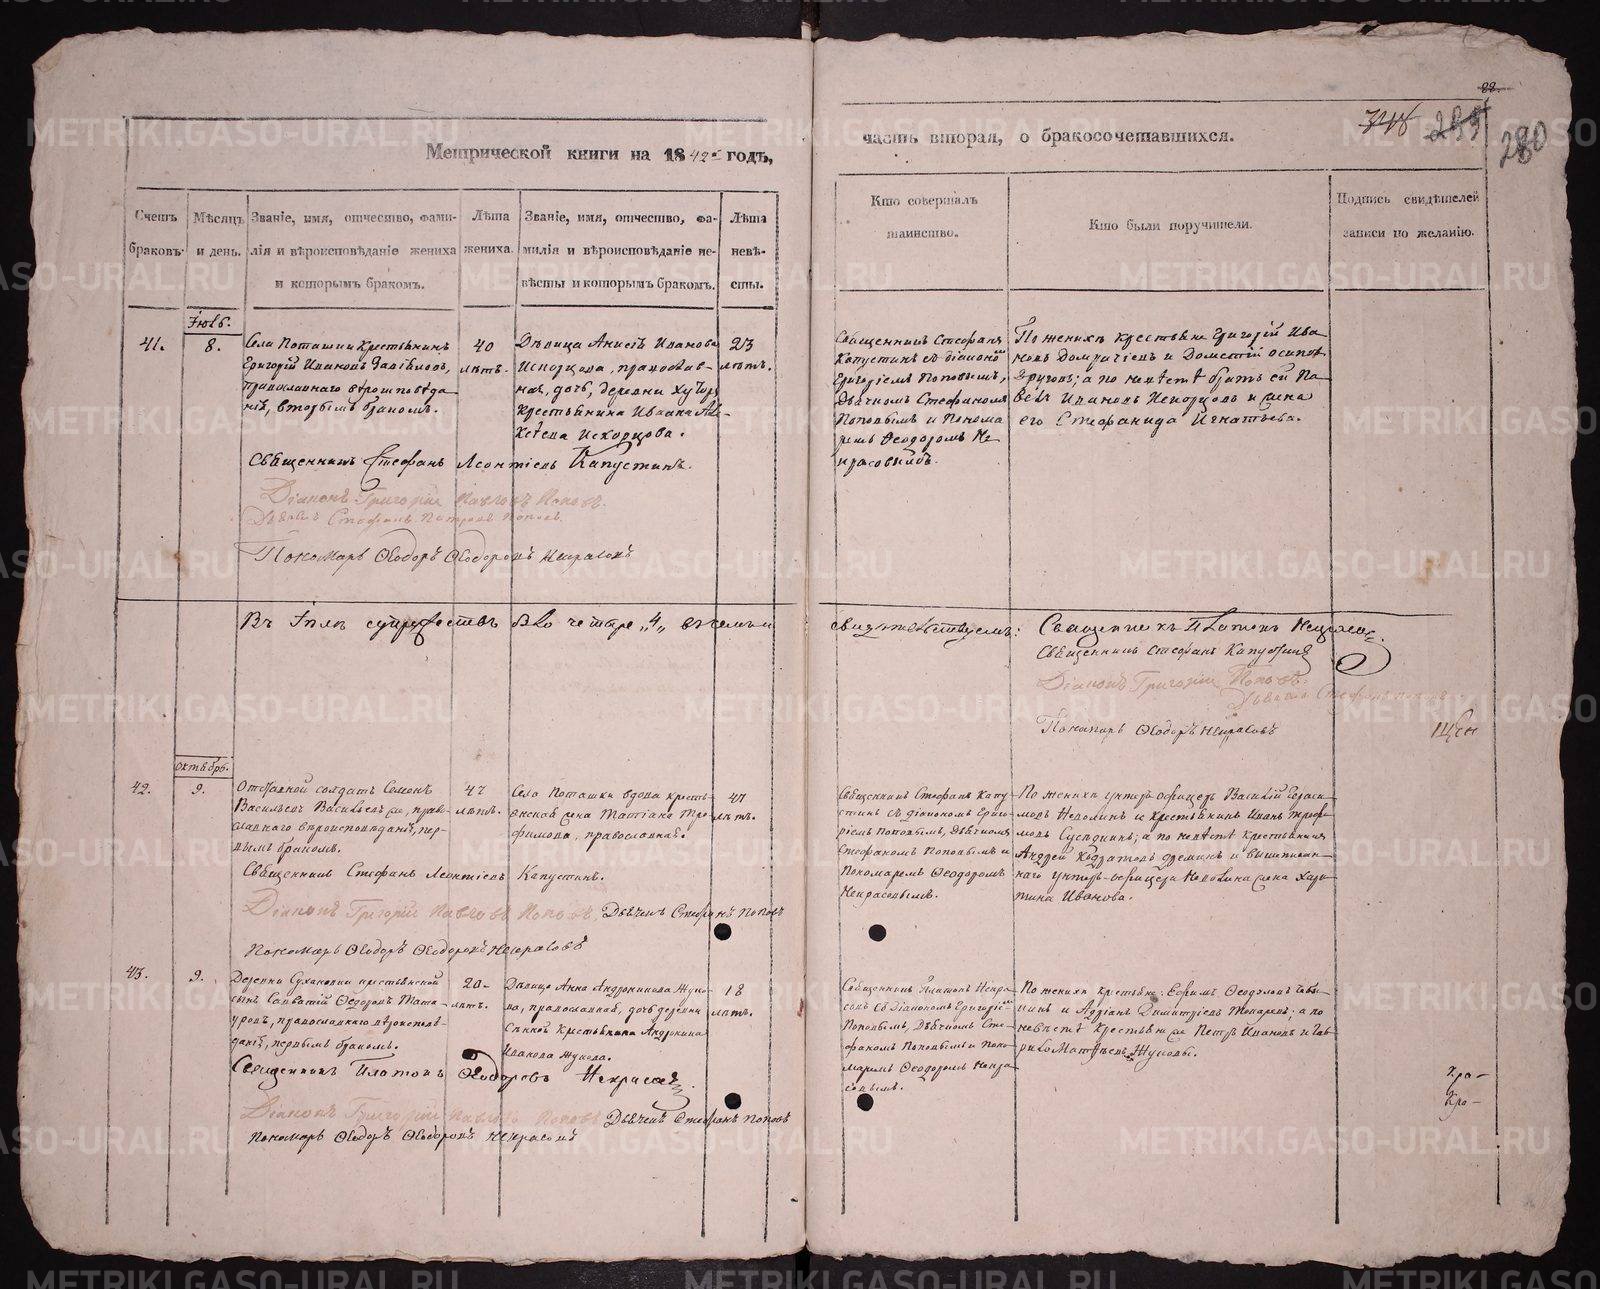 Метрической книги на 1842й годъ,
часть вторая, о бракосочетавшихся.
280
Счетъ браковъ.
Мѣсяцъ и день.
Званіе, имя, отчество, фами-
лія и вѣроисповѣданіе жениха
и которымъ бракомъ.
Лѣта
жениха.
Званіе, имя, отчество, фа-
милія и вѣроисповѣданіе не-
вѣсты и которымъ бракомъ.
Лѣта
невѣ-
сты.
Кто совершалъ
таинство.
Кто были поручители.
Подпись свидѣтелей
записи по желанію.
41.
8.
Села Поташки крестьянинъ
Григорій Ивановъ
православнаго вѣроисповѣда-
нія, вторымъ бракомъ.
40
лѣтъ.
Дѣвица Анисія Иванова
Искорцова, православ-
ная, дочь, деревни
крестьянина Ивана
Искорцова.
23
лѣтъ.
Священникъ Стефанъ
Капустинъ съ діакономъ
Григоріемъ Поповымъ,
Дьячкомъ Стефаномъ
Поповымъ и Понома
ремъ Ѳеодоромъ Не
красовымъ.
По женихѣ крестьяне Григорій Ива
новъ и Дометій Осиповъ
а по невѣстѣ братъ ея Па
велъ Ивановъ Искорцовъ и жена
его Стефанида Игнатьева.
Священникъ Стефанъ Леонтіевъ Капустинъ.
Діаконъ Григорій Павловъ Поповъ.
Дьячекъ Стефанъ Петровъ Поповъ.
Пономарь Ѳеодоръ Ѳеодоровъ Некрасовъ
свидѣтельствуемъ: Священникъ Платонъ Некрасовъ.
Священникъ Стефанъ Капустинъ
Діаконъ Григорій Поповъ.
Дьячекъ Стефанъ Поповъ
Пономарь Ѳеодоръ Некрасовъ
октябрь.
42.
9.
Отставной солдатъ Семенъ
Васильевъ Васильевъ же, право
славнаго вѣроисповѣданія, пер-
вымъ бракомъ.
47
лѣтъ.
Села Поташки вдова кресть-
янская жена Татіана Тро
фимова, православная.
47
лѣтъ.
Священникъ Стефанъ Капу
стинъ съ діакономъ Григо
ріемъ Поповымъ, Дьячкомъ
Стефаномъ Поповымъ и
Пономаремъ Ѳеодоромъ
Некрасовымъ.
По женихѣ унтеръ-офицеръ Василій
Неволинъ и крестьянинъ Иванъ Трофи
мовъ а по невѣстѣ крестьянинъ
Андрей и вышеписан-
наго унтеръ-офицера Неволина жена Хари
тина Иванова.
Священникъ Стефанъ Леонтіевъ Капустинъ.
Діаконъ Григорій Павловъ Поповъ. Дьячекъ Стефанъ Поповъ
Пономарь Ѳеодоръ Ѳеодоровъ Некрасовъ
43.
9.
Деревни Сухановки крестьянской
сынъ Савватій Ѳедоровъ Тата-
уровъ, православнаго вѣроисповѣ-
данія, первымъ бракомъ.
20-
лѣтъ.
Дѣвица Анна Андроникова Жуко-
ва, православная, дочь деревни
крестьянина Андроника
Иванова Жукова.
18
лѣтъ.
Священникъ Платонъ Некра
совъ съ Діакономъ Григоріемъ
Поповымъ, Дьячкомъ Сте-
фаномъ Поповымъ и Поно-
маремъ Ѳеодоромъ Некра
совымъ.
По женихѣ крестьяне: Ефимъ Ѳеодоловъ
и Адріанъ Димитріевъ Токаревъ; а по
невѣстѣ крестьяне же Петръ Ивановъ и Гав
рило Матвѣевъ Жуковы.
Священникъ Платонъ Ѳеодоровъ Некрасовъ.
Діаконъ Григорій Павловъ Поповъ Дьячекъ Стефанъ Поповъ
Пономарь Ѳеодоръ Ѳеодоровъ Некрасовъ
METRIKI.GASO-URAL.RU